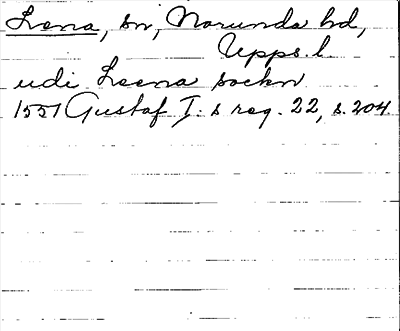 Lena, sn, Norunda hd,
Upps. l.
udi Leena sockn
1551 Gustaf I:s reg. 22, s. 204.